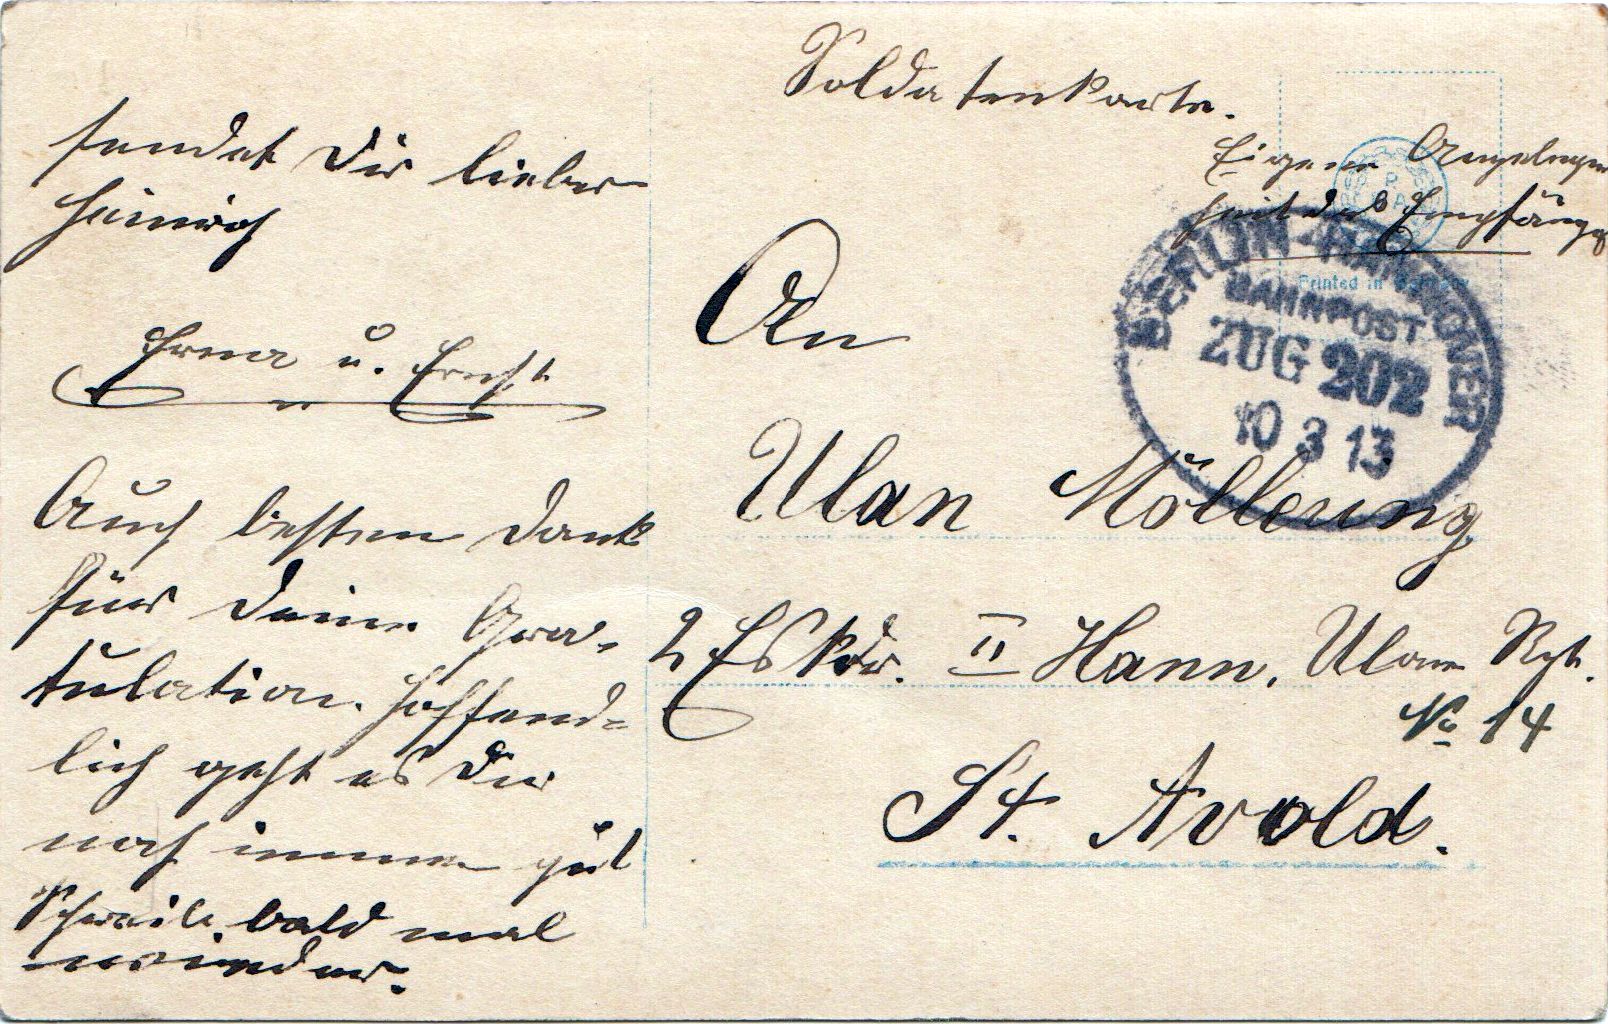 sendet Dir lieber
Heinrich
Erna u. Ernst
Auch besten Dank
für Deine Gra-
tulation. Hoffend-
lich geht es Dir
noch immer gut
Schreibe bald mal
wieder.
Soldatenkarte.
Eigene Angelegen
heit des Empfängers
BERLIN-HANNOVER
BAHNPOST
ZUG 202
10 3 13
Printed in Germany
An
Ulan Möllering
2 Eskdr. II Hann. Ulan Rgt.
No 14
St. Avold.